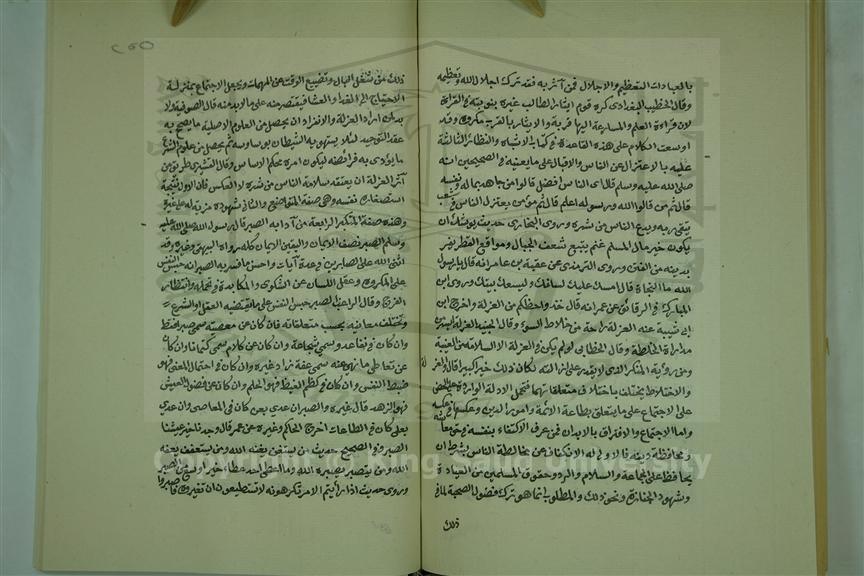 بالعبادات التعظيم والاجلال فمن آثر به فقد ترك اجلال الله وتعظيمه
وقال الخطيب البغدادي كره قوم ايثار الطالب غيره بنوبته في القراءة
لان قراءة العلم والمسارعة اليها قربة والايثار بالقرب مكروه وقد
اوسعت الكلام على هذه القاعدة في كتاب الاشباه والنظائر الثالثة
عليه بالاعتزال عن الناس والاقبال على ما يعنيه في الصحيحين انه
صلى الله عليه وسلم قال اي الناس افضل قالوا من جاهد بماله ونفسه
قال ثم من قالوا الله ورسوله اعلم قال ثم مؤمن يعتزل الناس في شعب
يتقي ربه ويدع الناس من شره وروى البخاري حديث يوشك ان
يكون خير مال المسلم غنم يتبع شعف الجبال ومواقع القطر يفر
بدينه من الفتن وروى الترمذي عن عقبة بن عامر انه قال يا رسول
الله ما النجاة قال امسك عليك لسانك وليسعك بيتك وروى ابن
المبارك في الرقائق عن عمر انه قال خذوا حظكم من العزلة واخرج ابن
ابي شيبة عنه العزلة راحة من خلاط السوء وقال الجنيد العزلة ايسر من
مداراة الخلطة وقال الخطابي لو لم يكن في العزلة الا السلامة من الغيبة
ومن رؤية المنكر الذي لا يقدر على ازالته لكان ذلك خيرا كبيرا قال والعزلة
والاختلاط يختلف باختلاف متعلقاتهما فتحمل الادلة الواردة على الحض
على الاجتماع على ما يتعلق بطاعة الائمة وامور الدين وعكسها في عكسه
واما الاجتماع والافتراق بالابدان فمن عرف الاكتفاء بنفسه في معاشه
ومحافظة دينه فالاولى له الانكفاف عن مخالطة الناس بشرط ان
يحافظ على الجماعة والسلام والرد وحقوق المسلمين من العيادة
وشهود الجنازة ونحو ذلك والمطلوب انما هو ترك فضول الصحبة لما في
ذلك
٢٥٥
ذلك من شغل البال وتضييع الوقت عن المهمات ويجعل الاجتماع بمنزلة
الاحتياج الى الغداء والعشا فيقتصر منه على ما لا بد منه قال الصوفية ولا
بد لمن اراد العزلة والانفراد ان يحصل من العلوم الاصلية ما يصح به
عقد التوحيد لئلا يستهويه الشيطان بوساوسه ثم يحصل من علوم الشرع
ما يؤدى به فرائضه ليكون امره محكم الاساس وقال القشيري طريق من
آثر العزلة ان يعتقد سلامة الناس من شره لا العكس فان الاول نتيجة
استصغار نفسه وهي صفة المتواضع والثاني شهوده مزية له على غيره
وهذه صفة المتكبر الرابعة من آدابه الصبر قال رسول الله صلى الله عليه
وسلم الصبر نصف الايمان واليقين الايمان كله رواه البيهقي وغيره وقد
اثنى الله على الصابرين في عدة آيات واحسن ما فسر به الصبر انه حبس النفس
على المكروه وعقل اللسان عن الشكوى والمكابدة في تحمله وانتظار
الفرج وقال الراغب الصبر حبس النفس على ما يقتضيه العقل او الشرع
وتختلف معانيه بحسب متعلقاته فان كان عن معصية سمي صبرا فقط
وان كان في لقاء عدو سمي شجاعة وان كان عن كلام سمي كتمانا وان كان
عن تعاطي ما نهي عنه سمي عفة زاد غيره وان كان في احتمال الغنى فهو
ضبط النفس وان كان في كظم الغيظ فهو الحلم وان كان عن فضول العيش
فهو الزهد قال غيره والصبر ان عدي بعن كان في المعاصي وان عدي
بعلى كان في الطاعات اخرج الحاكم وغيره عن عمر قال وجدنا خير عيشنا
الصبر وفي الصحيح حديث من يستغن يغنه الله ومن يستعفف يعفه
الله ومن يتصبر يصبره الله وما اعطى احد عطاء خيرا واوسع من الصبر
وروى حديث اذا رأيتم الامر تكرهونه لا تستطيعون ان تغيروه فاصبروا